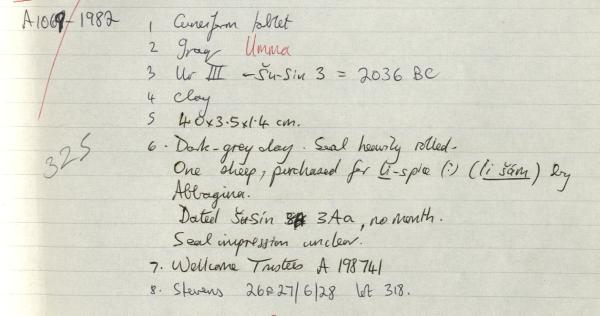 A1069-1982
1 Cuneiform tablet
2 Iraq Umma
3 Ur III - Šu-Sin 3 = 2036 BC
4 clay
5 4.0x3.5x1.4 cm.
325
6. Dark-grey clay. Seal heavily rolled.
One sheep, purchased for li-spice (:) (li šám) by
Abbagina.
Dated Šu-Sin 3Aa, no month.
Seal impression unclear.
7. Wellcome Trustees A 198741
8. Stevens 26&27/6/28 lot 318.